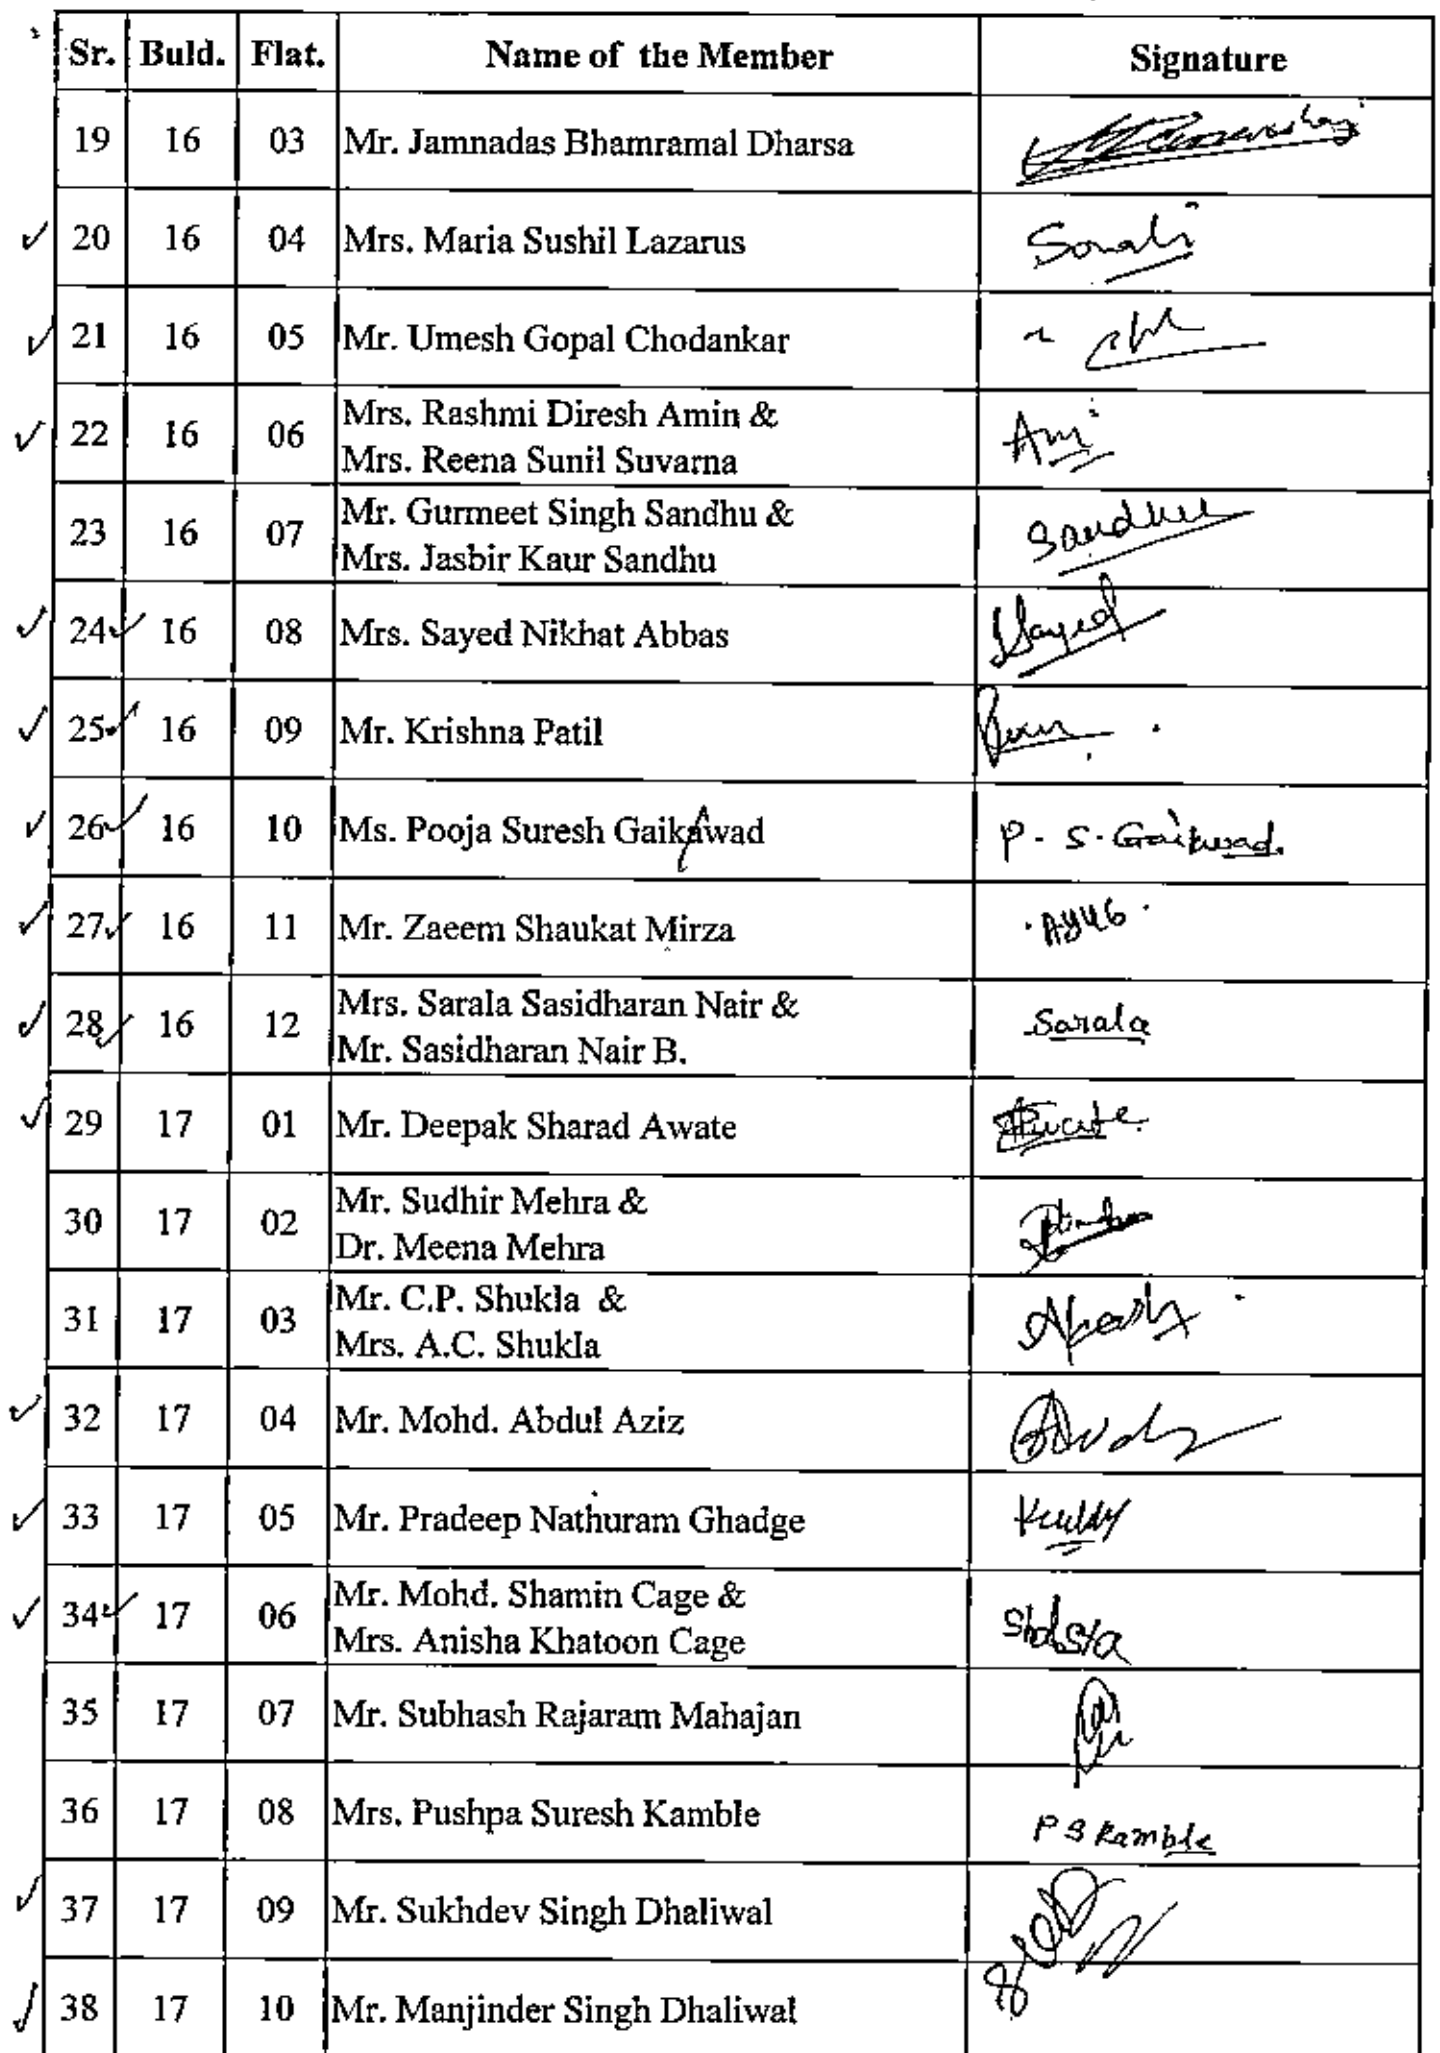 Sr. Buld. Flat. Name of the Member Signature
19 16 03 Mr. Jamnadas Bhamramal Dharsa
20 16 04 Mrs. Maria Sushil Lazarus Sonali
21 16 05 Mr. Umesh Gopal Chodankar
22 16 06 Mrs. Rashmi Diresh Amin &
Mrs. Reena Sunil Suvarna
23 16 07 Mr. Gurmeet Singh Sandhu & Sandhu
Mrs. Jasbir Kaur Sandhu
24 16 08 Mrs. Sayed Nikhat Abbas Sayed
25 16 09 Mr. Krishna Patil
26 16 10 Ms. Pooja Suresh Gaikawad P. S. Gaikwad.
27 16 11 Mr. Zaeem Shaukat Mirza
28 16 12 Mrs. Sarala Sasidharan Nair & Sarala
Mr. Sasidharan Nair B.
29 17 01 Mr. Deepak Sharad Awate
30 17 02 Mr. Sudhir Mehra &
Dr. Meena Mehra
31 17 03 Mr. C.P. Shukla &
Mrs. A.C. Shukla
32 17 04 Mr. Mohd. Abdul Aziz
33 17 05 Mr. Pradeep Nathuram Ghadge
34 17 06 Mr. Mohd. Shamin Cage &
Mrs. Anisha Khatoon Cage
35 17 07 Mr. Subhash Rajaram Mahajan
36 17 08 Mrs. Pushpa Suresh Kamble P S Kamble
37 17 09 Mr. Sukhdev Singh Dhaliwal
38 17 10 Mr. Manjinder Singh Dhaliwal